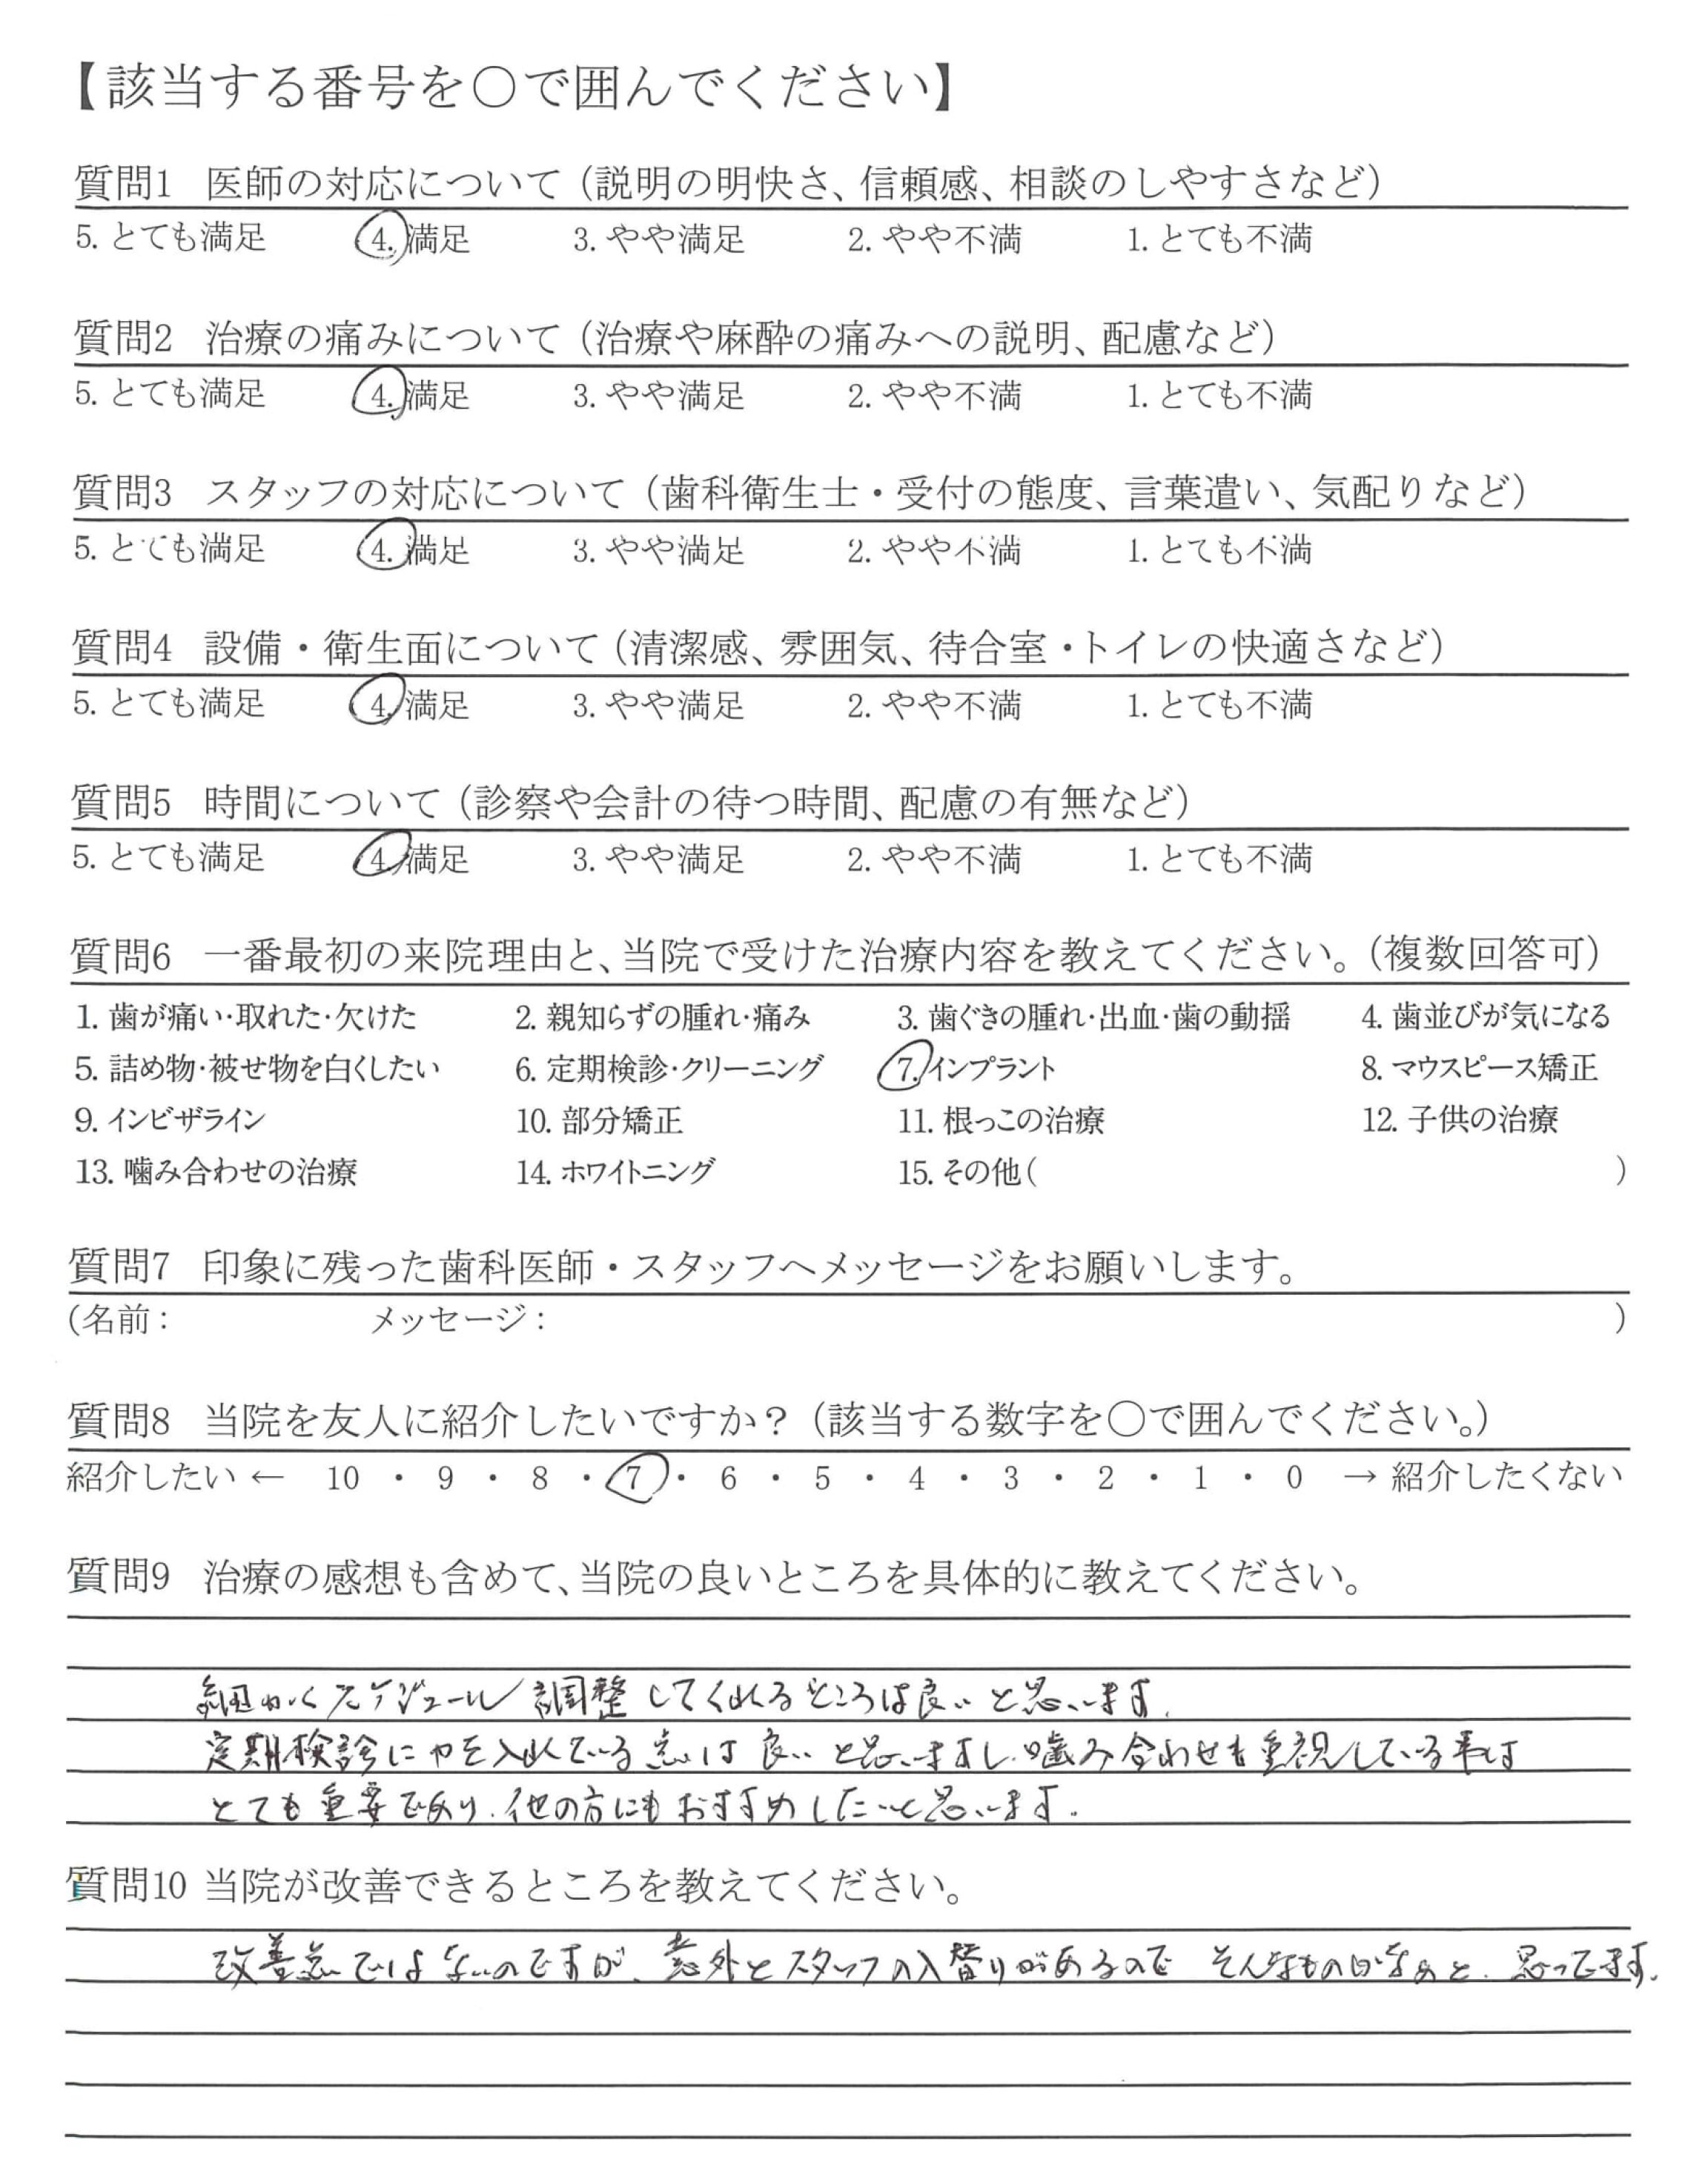 【該当する番号を〇で囲んでください】
質問1 医師の対応について（説明の明快さ、信頼感、相談のしやすさなど）
5. とても満足 4. 満足 3. やや満足 2. やや不満 1. とても不満
質問2 治療の痛みについて（治療や麻酔の痛みへの説明、配慮など）
5. とても満足 4. 満足 3. やや満足 2. やや不満 1. とても不満
質問3 スタッフの対応について（歯科衛生士・受付の態度、言葉遣い、気配りなど）
5. とても満足 4. 満足 3. やや満足 2. やや不満 1. とても不満
質問4 設備・衛生面について（清潔感、雰囲気、待合室・トイレの快適さなど）
5. とても満足 4. 満足 3. やや満足 2. やや不満 1. とても不満
質問5 時間について（診察や会計の待つ時間、配慮の有無など）
5. とても満足 4. 満足 3. やや満足 2. やや不満 1. とても不満
質問6 一番最初の来院理由と、当院で受けた治療内容を教えてください。（複数回答可）
1. 歯が痛い・取れた・欠けた 2. 親知らずの腫れ・痛み 3. 歯ぐきの腫れ・出血・歯の動揺 4. 歯並びが気になる
5. 詰め物・被せ物を白くしたい 6. 定期検診・クリーニング 7. インプラント 8. マウスピース矯正
9. インビザライン 10. 部分矯正 11. 根っこの治療 12. 子供の治療
13. 噛み合わせの治療 14. ホワイトニング 15. その他（ ）
質問7 印象に残った歯科医師・スタッフへメッセージをお願いします。
（名前： メッセージ： ）
質問8 当院を友人に紹介したいですか？（該当する数字を〇で囲んでください。）
紹介したい ← 10 ・ 9 ・ 8 ・ 7 ・ 6 ・ 5 ・ 4 ・ 3 ・ 2 ・ 1 ・ 0 → 紹介したくない
質問9 治療の感想も含めて、当院の良いところを具体的に教えてください。
細かくスケジュール調整してくれるところは良いと思います。
定期検診に力を入れている点は良いと思いますし、噛み合わせも重視している事は
とても重要であり、他の方にもおすすめしたいと思います。
質問10 当院が改善できるところを教えてください。
改善点ではないのですが、意外とスタッフの入替りがあるので そんなものかなぁと、思ってます。